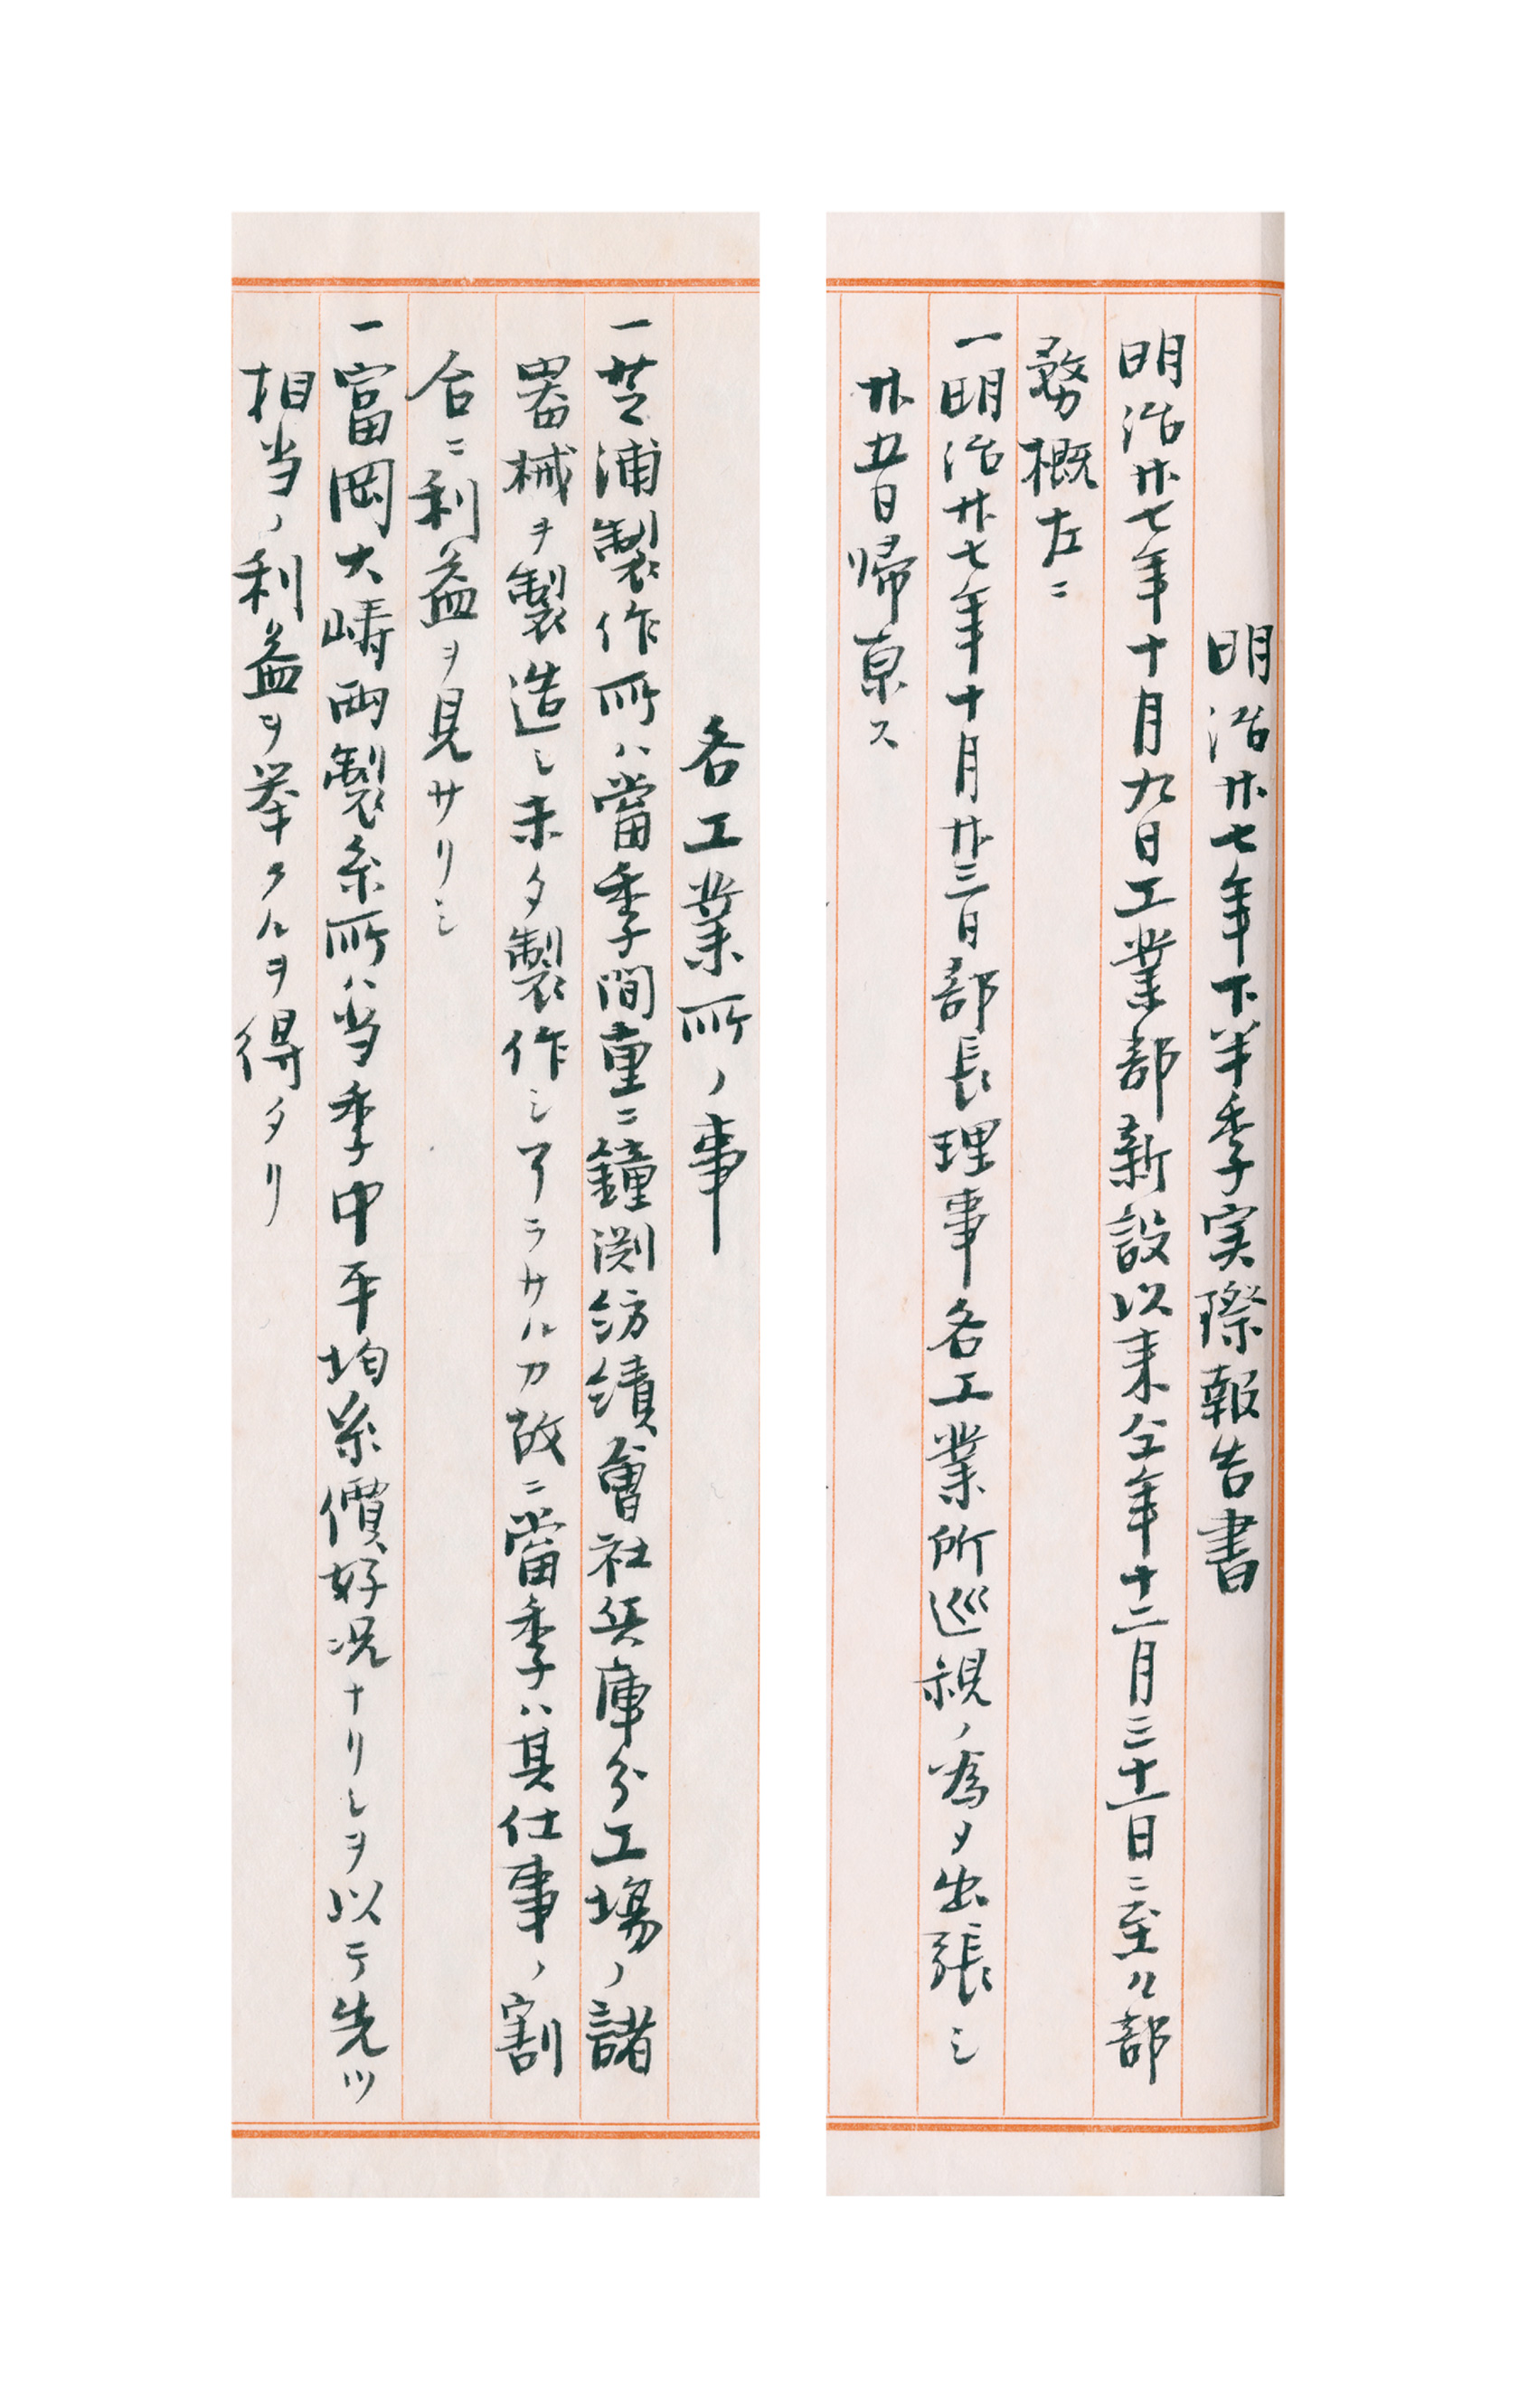 明治廿七年下半季実際報告書
明治廿七年十月九日工業部新設以来仝年十二月三十一日ニ至ル部
務概左ニ
一明治廿七年十月廿三日部長理事各工業所巡視ノ為メ出張シ
廿五日帰京ス
各工業所ノ事
一芝浦製作所ハ當季間重ニ鐘淵紡績會社兵庫分工場ノ諸
器械ヲ製造シ未タ製作シアラサルカ故ニ當季ハ其仕事ノ割
合ニ利益ヲ見サリシ
一富岡大嶹両製糸所ハ当季中平均糸價好况ナリシヲ以テ先ツ
相当ノ利益ヲ挙クルヲ得タリ